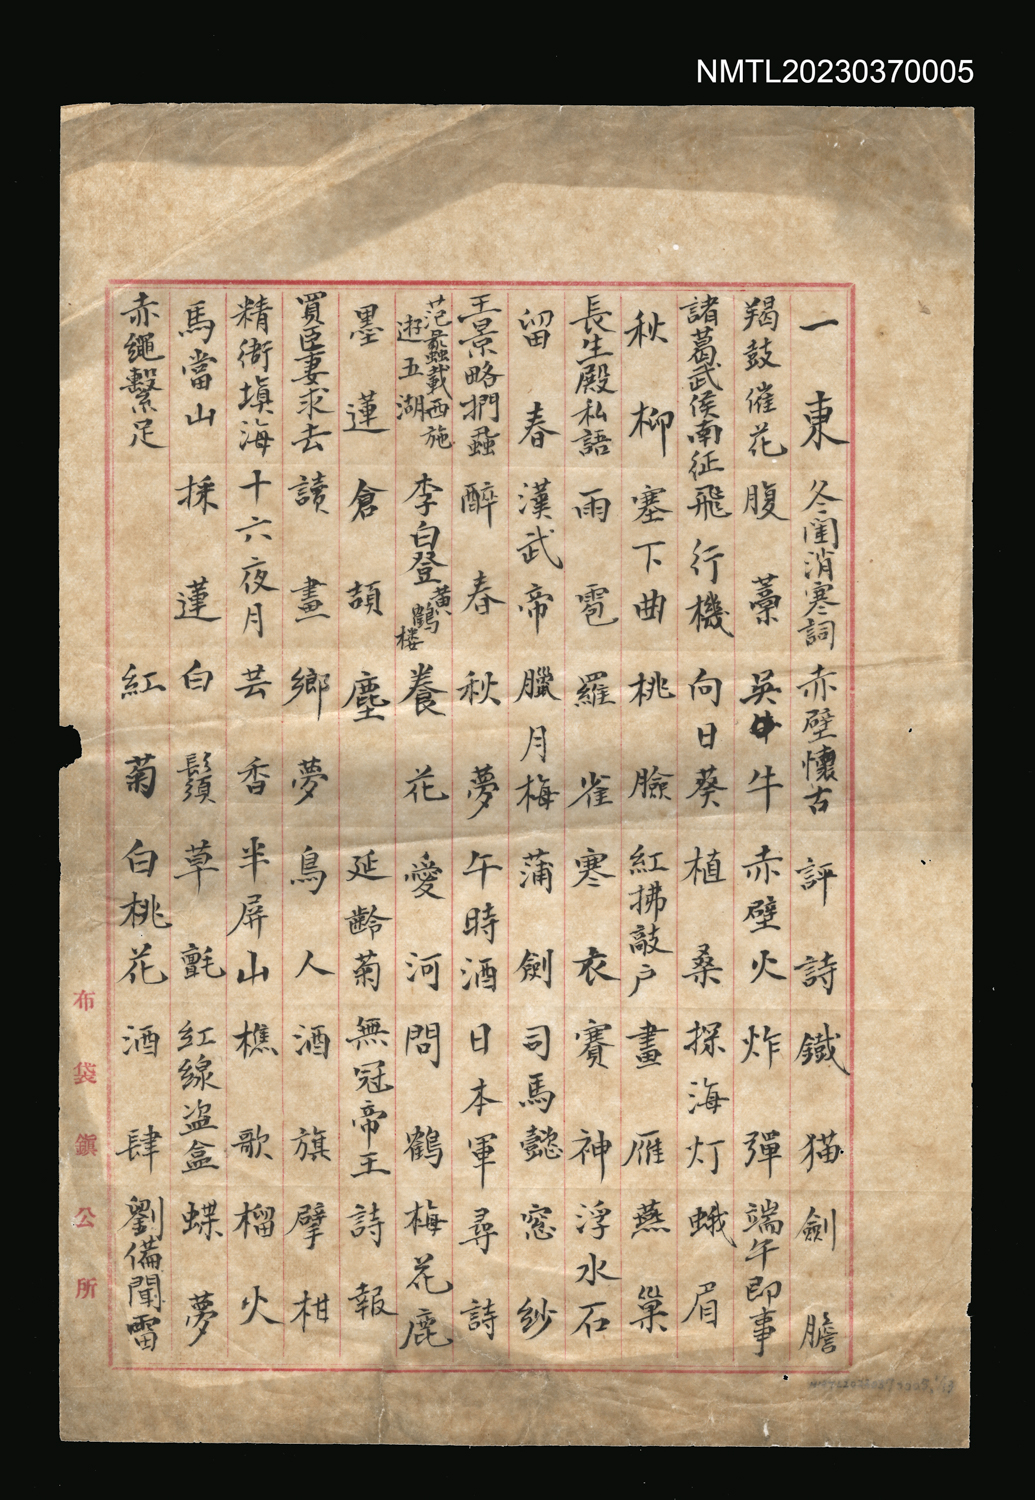 NMTL20230370005
一東 冬閨消寒詞 赤壁懷古 評詩 鐵貓 劍膽
羯鼓催花 腹藁 吳牛 赤壁火 炸彈 端午即事
諸葛武侯南征 飛行機 向日葵 植桑 探海灯 蛾眉
秋柳 塞下曲 桃臉 紅拂敲户 畫雁 燕巢
長生殿私語 雨雹 羅雀 寒衣 賽神 浮水石
留春 漢武帝 臘月梅 蒲劍 司馬懿 窓紗
王景略捫蝨 醉春 秋夢 午時酒 日本軍 尋詩
范蠡載西施遊五湖 李白登黃鶴楼 養花 愛河 問鶴 梅花鹿
墨蓮 倉頡 塵 延齡菊 無冠帝王 詩報
買臣妻求去 讀畫 鄉夢 鳥人 酒旗 擘柑
精衛填海 十六夜月 芸香 半屏山 樵歌 榴火
馬當山 採蓮 白鬚 草氈 紅線盗盒 蝶夢
赤繩繫足 紅菊 白桃花 酒肆 劉備聞雷
布袋鎮公所